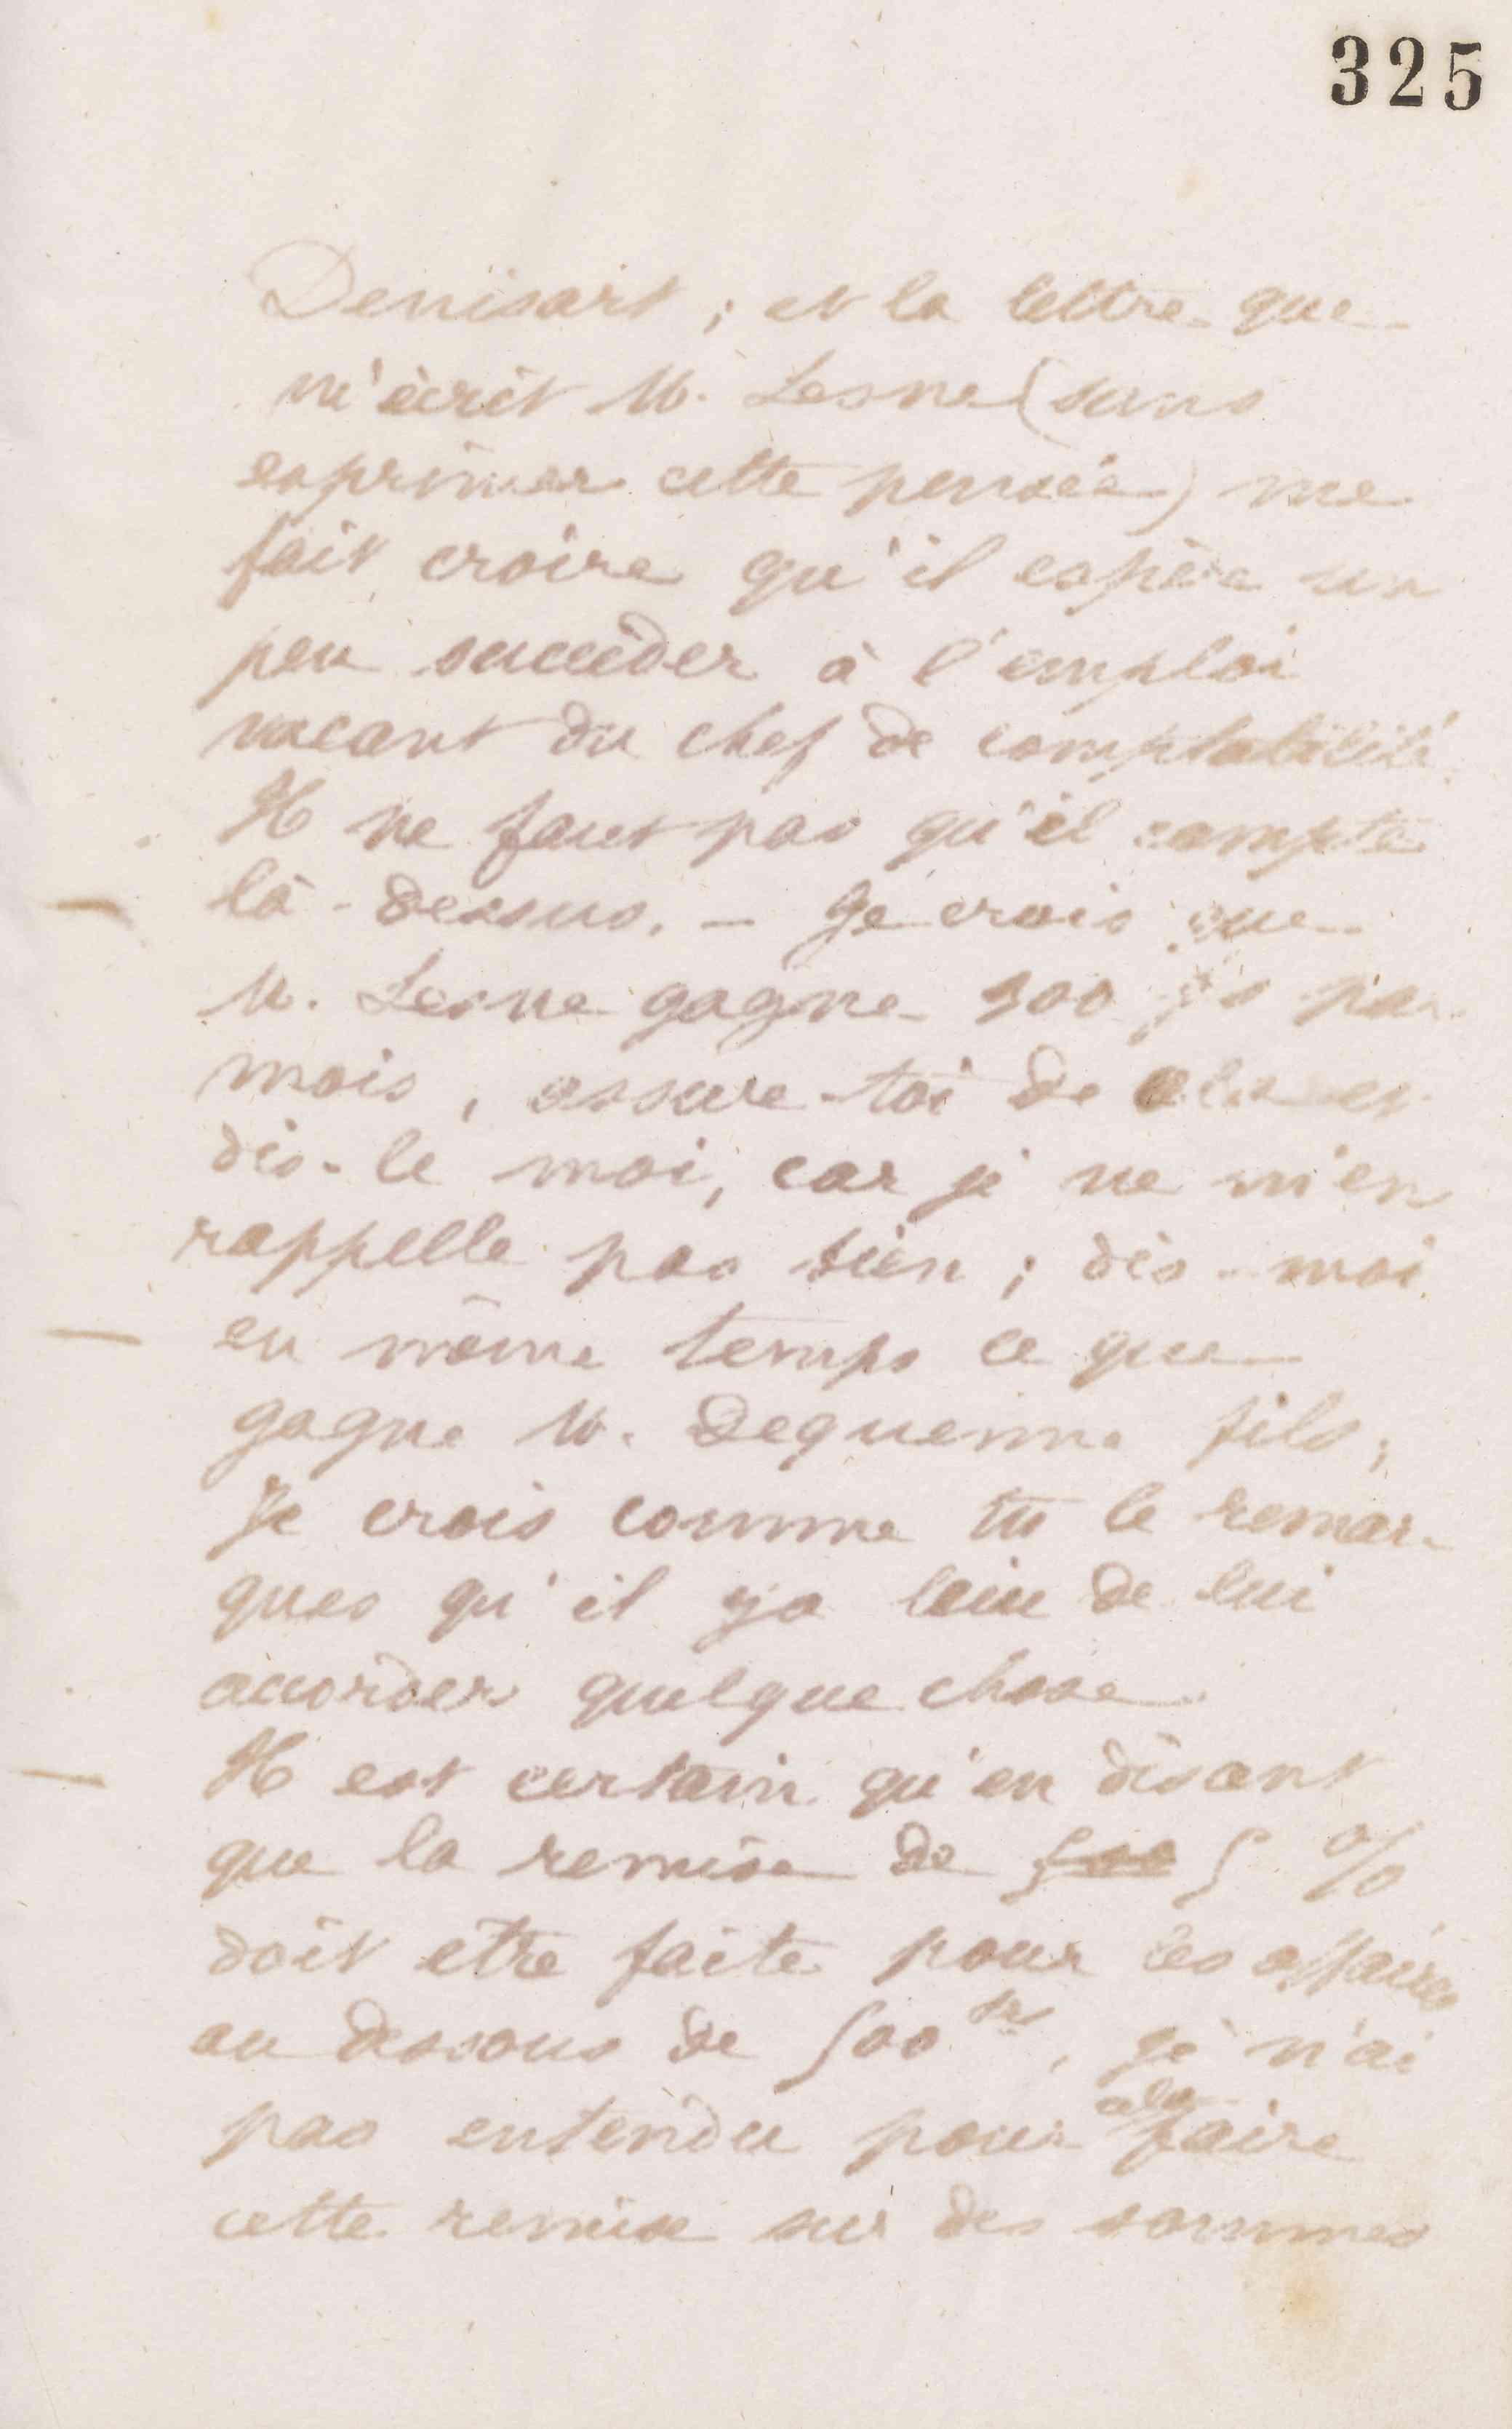 325
Denisart ; et la lettre que
m'écrit M. Lesne (sans
exprimer cette pensée) me
fait croire qu'il espère un
peu succéder à l'emploi
vacant du chef de comptabilité.
Il ne faut pas qu'il compte
là-dessus. – Je crois que
M. Lesne gagne 300 frs par
mois, assure-toi de cela et
dis-le moi, car je ne m'en
rappelle pas bien ; dis-moi
en même temps ce que
gagne M. Dequenne fils ;
Je crois comme tu le remar-
ques qu'il y a lieu de lui
accorder quelque chose.
Il est certain qu'en disant
que la remise de 500 5 %
doit être faite pour les affaires
au dessous de 500 frs, je n'ai
pas entendu pour cela faire
cette remise sur des sommes